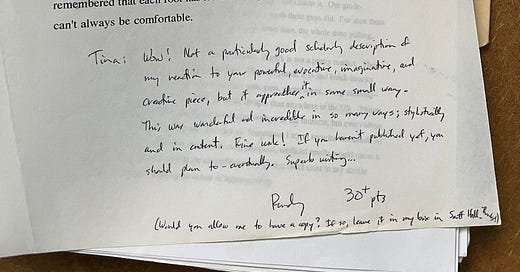 remembered that each foot has
can't always be comfortable.
Tina: Wow! Not a particularly good scholarly description of
my reaction to your powerful, evocative, imaginative, and
creative piece, but it approaches it in some small way.
This was wonderful and incredible in so many ways; stylistically
and in content. Fine work! If you haven't published yet, you
should plan to - eventually. Superb writing...
Randy 30+ pts
(Would you allow me to have a copy? If so, leave it in my box in Hall